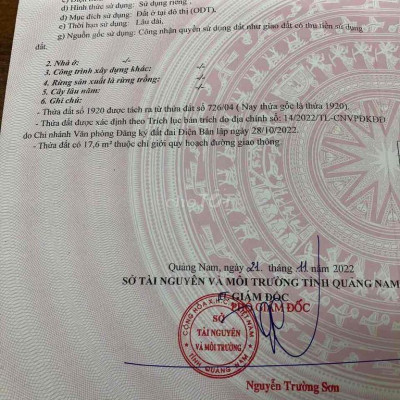 d) Hình thức sử dụng: Sử dụng riêng,
đ) Mục đích sử dụng: Đất ở tại đô thị (ODT),
e) Thời hạn sử dụng: Lâu dài,
g) Nguồn gốc sử dụng: Công nhận quyền sử dụng đất như giao đất có thu tiền sử dụng
đất.
2. Nhà ở: -/-
3. Công trình xây dựng khác: -/-
4. Rừng sản xuất là rừng trồng: -/-
5. Cây lâu năm: -/-
6. Ghi chú:
- Thửa đất số 1920 được tách ra từ thửa đất số 726/04 ( Nay thửa gốc là thửa 1920).
- Thửa đất được xác định theo Trích lục bản trích đo địa chính số: 14/2022/TL-CNVPĐKĐĐ
do Chi nhánh Văn phòng Đăng ký đất đai Điện Bàn lập ngày 28/10/2022.
- Thửa đất có 17,6 m² thuộc chỉ giới quy hoạch đường giao thông.
chợTỐT
Quảng Nam, ngày 21 tháng 11 năm 2022
SỞ TÀI NGUYÊN VÀ MÔI TRƯỜNG TỈNH QUẢNG NAM
KT. GIÁM ĐỐC
PHÓ GIÁM ĐỐC
CỘNG HÒA X.H.C.N VIỆT NAM
SỞ
TÀI NGUYÊN
VÀ MÔI TRƯỜNG
TỈNH QUẢNG NAM
Nguyễn Trường Sơn